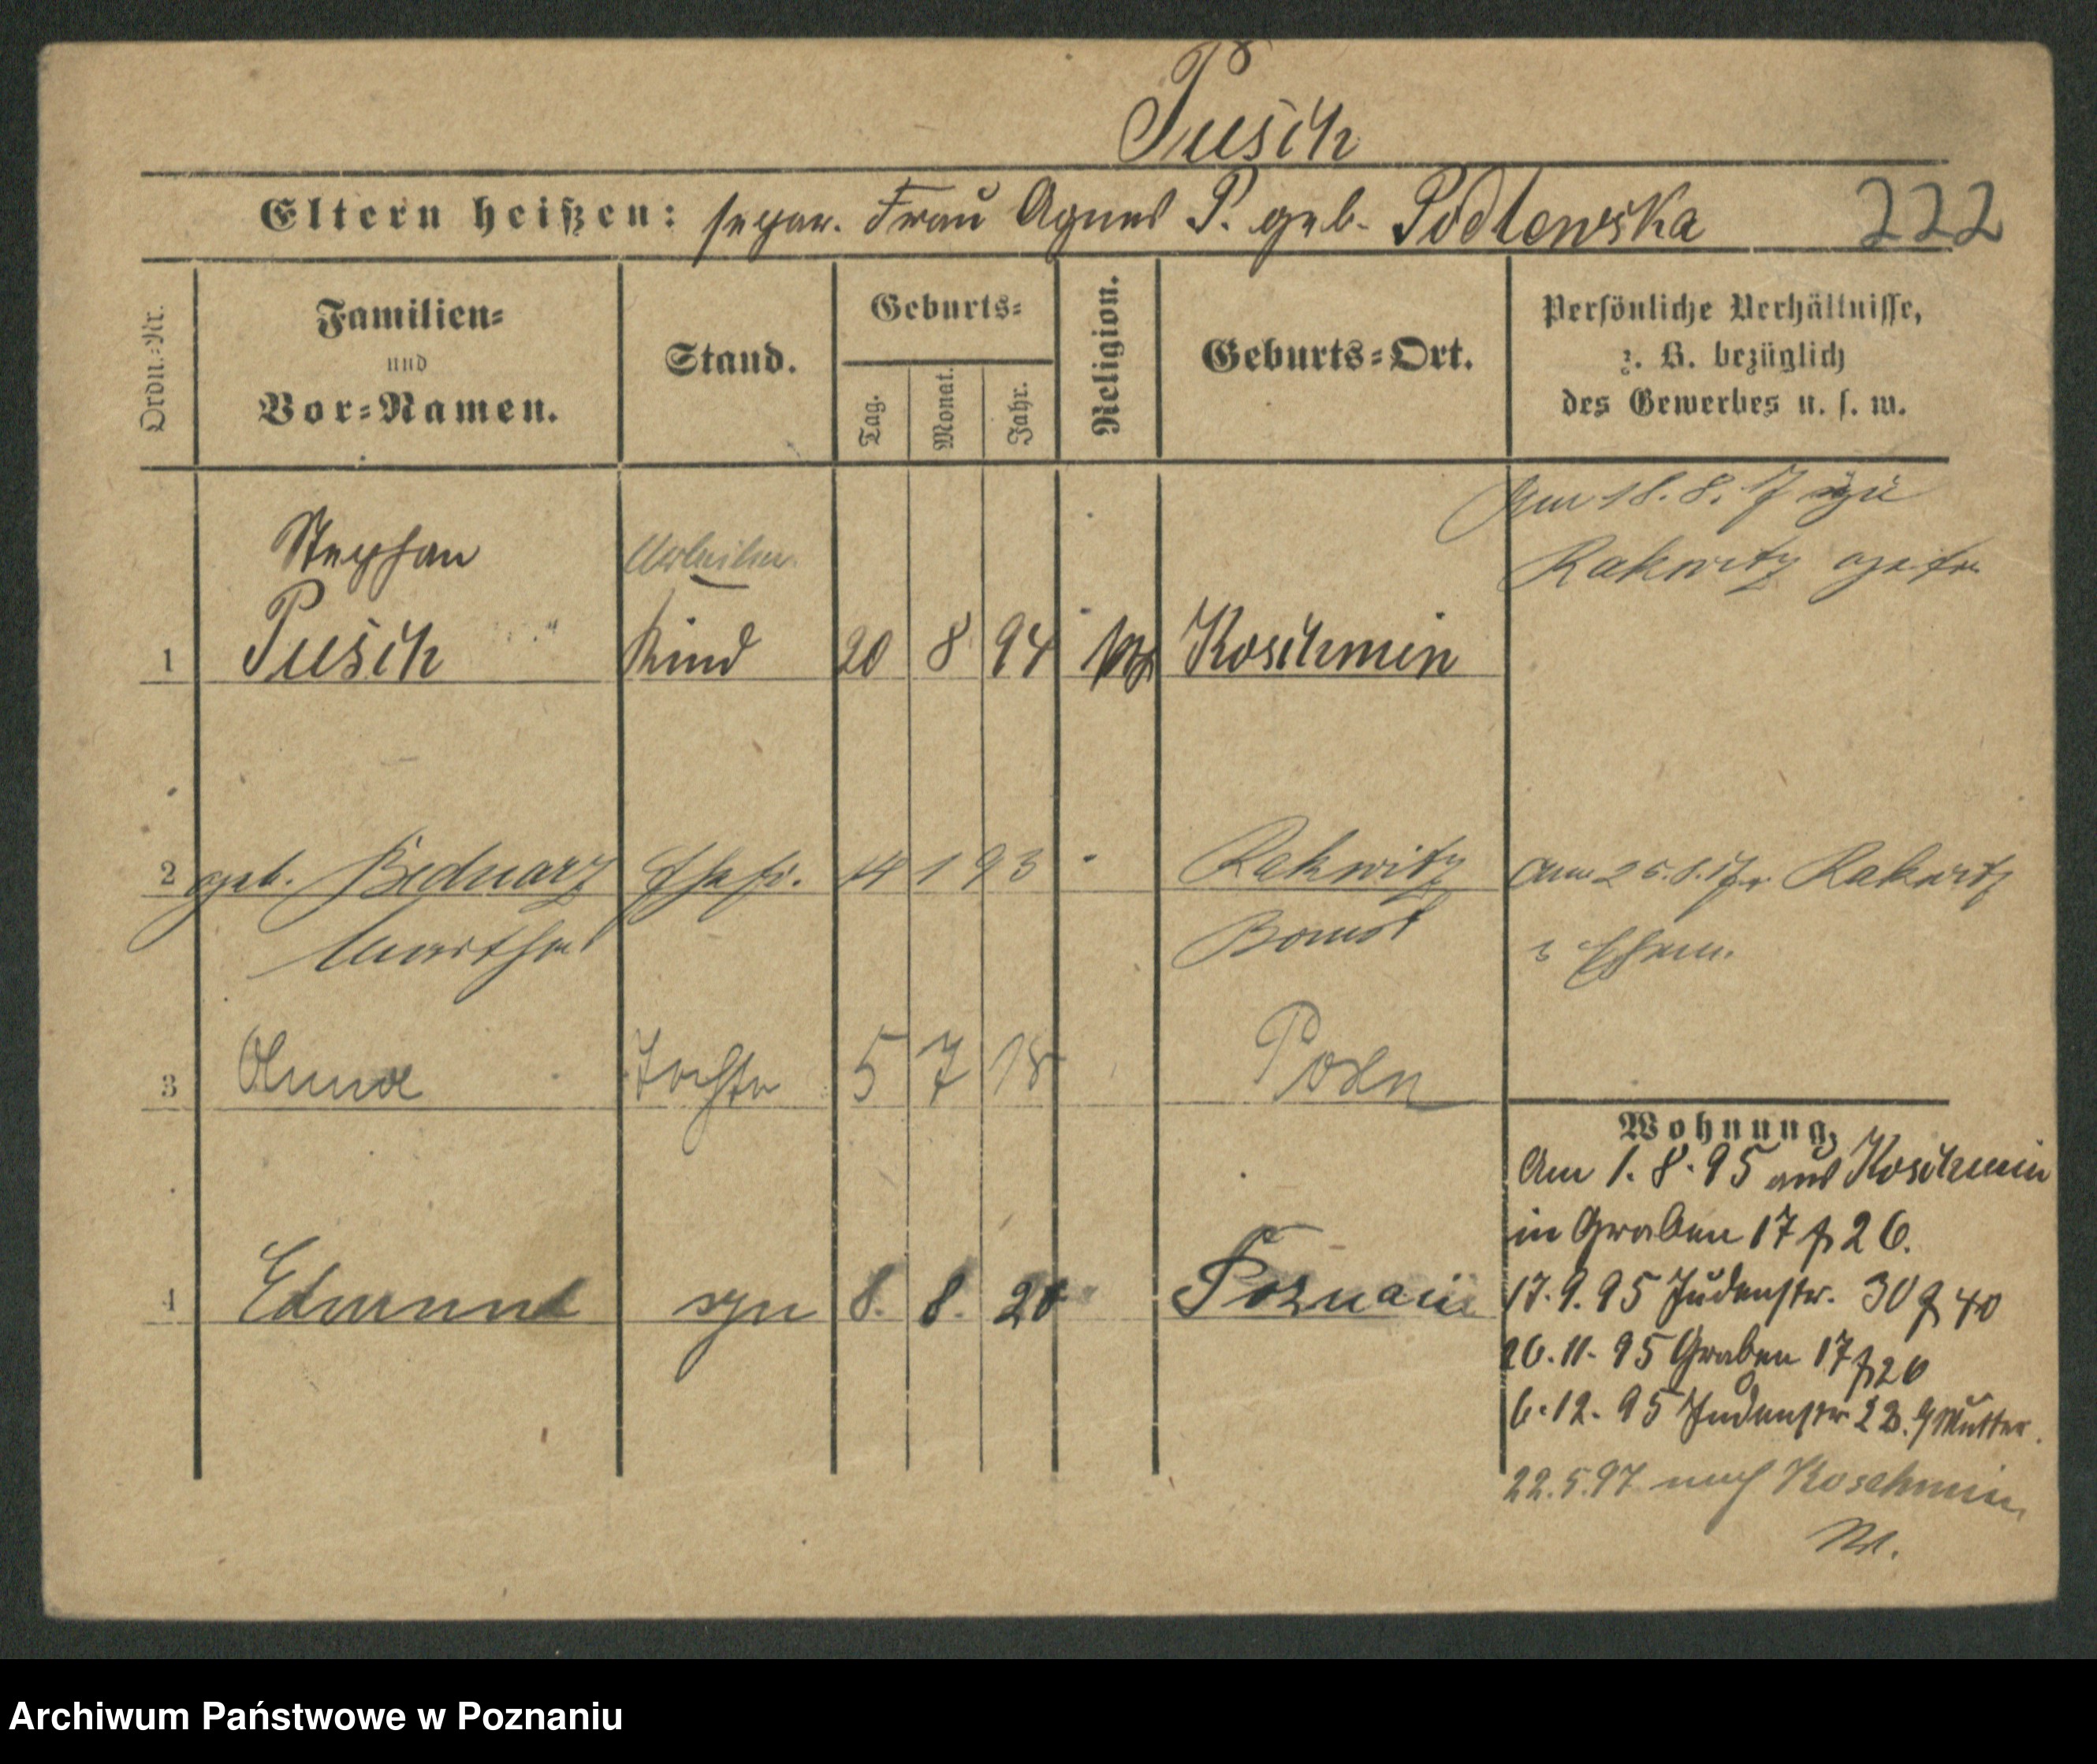 Pusch
Eltern heißen: separ. Frau Agnes P. geb. Podlewska 222
Ordn.=Nr.
Familien=
und
Vor=Namen.
Stand.
Geburts=
Tag.
Monat.
Jahr.
Religion.
Geburts=Ort.
Persönliche Verhältnisse,
z. B. bezüglich
des Gewerbes u. s. w.
Am 18. 8. 17 zu
Rakwitz
Stephan
1 Pusch Kind 20 8 94 Koschmin
2 geb. Bednarz Ehefr. 14 1 93 Rakwitz Am 25.8.17 Rakwitz
Martha Bomst
3 Tochter 5 7 18 Posen
4 Edmund syn 8. 8. 20 Poznań
Wohnung.
Am 1. 8. 95 aus Koschmin
in Graben 17 26.
17. 9. 95 Judenstr. 30 40
26. 11. 95 Graben 17 26
6. 12. 95 Judenstr. Mutter.
22. 5. 97 nach Koschmin
Archiwum Państwowe w Poznaniu